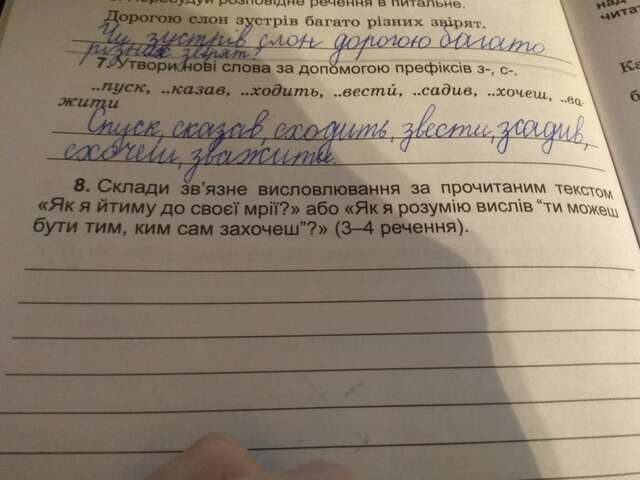 розповідне речення в питальне.
Дорогою слон зустрів багато різних звірят.
Чи зустрів слон дорогою багато
різних звірят?
7. Утвори нові слова за допомогою префіксів з-, с-.
..пуск, ..казав, ..ходить, ..вести́, ..садив, ..хочеш, ..ва-
жити
Спуск, сказав, сходить, звести, зсадив,
схочеш, зважити.
8. Склади зв’язне висловлювання за прочитаним текстом
«Як я йтиму до своєї мрії?» або «Як я розумію вислів “ти можеш
бути тим, ким сам захочеш”?» (3–4 речення).
над
читат
Ка
б